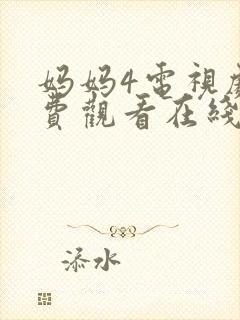 妈妈4電視
費觀看在綫
添水